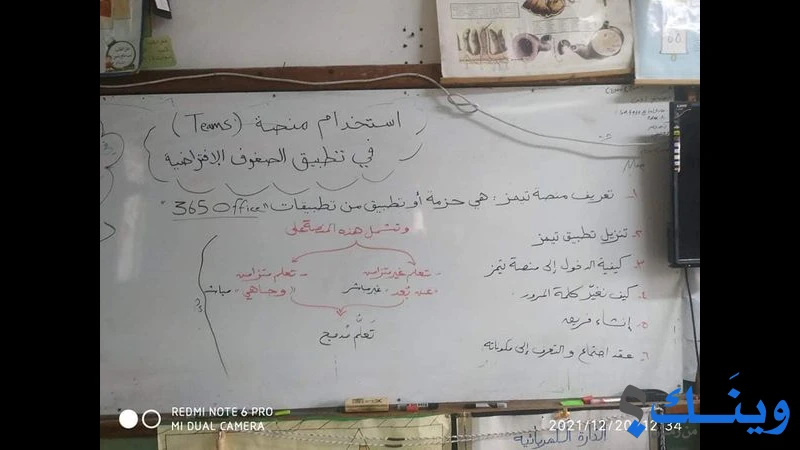 استخدام منصة (Teams)
في تطبيق الصفوف الإفتراضية
١- تعريف منصة تيمز: هي حزمة أو تطبيق من تطبيقات "365 Office"
وتشمل هذه المنصة على
٢- تنزيل تطبيق تيمز
٣- كيفية الدخول إلى منصة تيمز
٤- كيف نغيّر كلمة المرور
٥- إنشاء فريق
٦- عقد اجتماع والتعرف إلى مكوناته
- تعلم غير متزامن
"عن بُعد" غير مباشر
- تعلم متزامن
"وجاهي" مباشر
تَعلُّم مُدمج
REDMI NOTE 6 PRO
MI DUAL CAMERA
2021/12/20 12:34
وينَك
الدارة الكهربائية